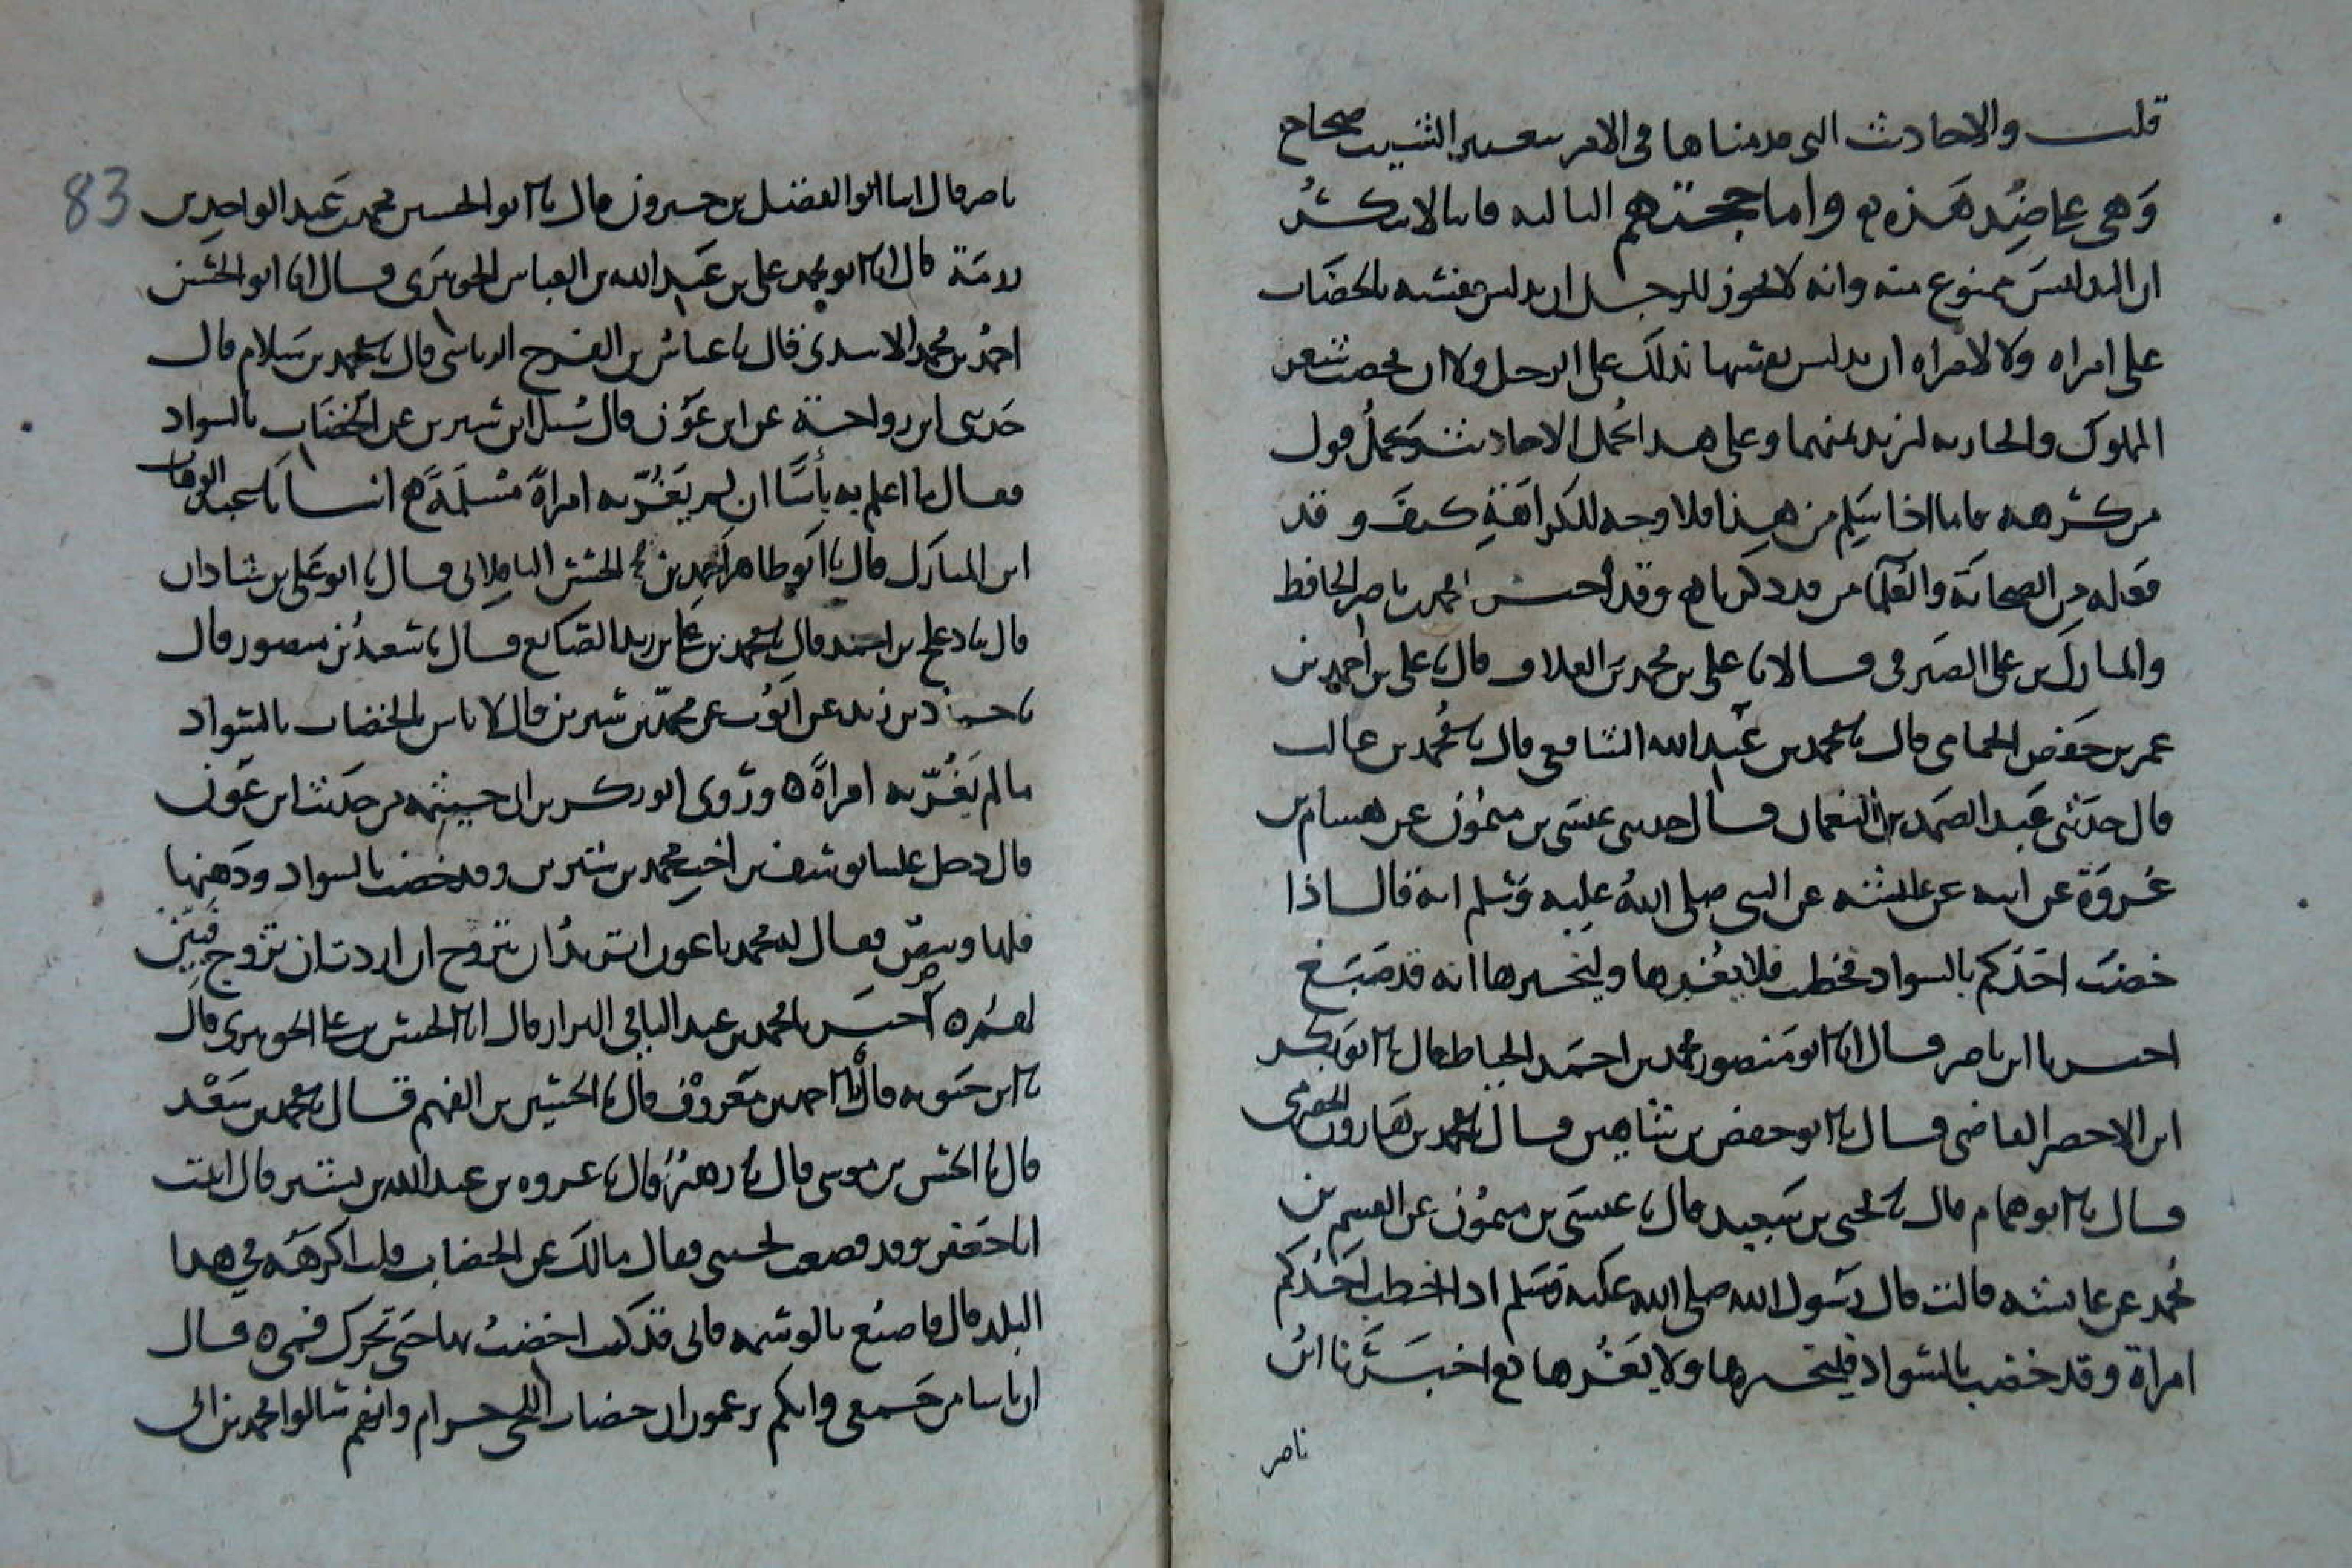 قلت والاحاديث التي قدمناها في الامر بتغيير الشيب صحاح
وهي تعاضد هذه واما حجتهم الثالثة فانا لا ننكر
ان التدليس ممنوع منه وانه لا يجوز للرجل ان يدلس نفسه بالخضاب
على امراه ولا لامراه ان تدلس نفسها بذلك على الرجل ولا ان يخضب شعر
المملوك والجاريه ليزيد ثمنهما وعلى هذا تحمل الاحاديث ويحمل قول
من كرهه فاما اذا سلم من هذا فلا وجه للكراهة كيف وقد
فعله من الصحابة والعلماء من قد ذكرنا وقد احسن محمد بن ناصر الحافظ
والمبارك بن علي الصيرفي قالا نا علي بن محمد بن العلاف قال نا علي بن احمد بن
عمر بن حفص الحمامي قال نا محمد بن عبد الله الشافعي قال نا محمد بن غالب
قال حدثني عبد الصمد بن النعمان قال حدثني عيسى بن ميمون عن هشام بن
عروة عن ابيه عن عائشه عن النبي صلى الله عليه وسلم انه قال اذا
خضب احدكم بالسواد فخطب فلا يغرها وليخبرها انه قد صبغ
اخبرنا ابن ناصر قال انا ابو منصور محمد بن احمد الخياط قال نا ابو بكر
ابن الاخضر القاضي قال نا ابو حفص بن شاهين قال نا محمد بن هارون الحضرمي
قال نا ابو همام قال نا يحيى بن سعيد قال نا عيسى بن ميمون عن القسم بن
محمد عن عايشه قالت قال رسول الله صلى الله عليه وسلم اذا خطب احدكم
امراة وقد خضب بالسواد فليخبرها ولا يغرها اخبرنا ابن
ناصر
ناصر قال انبا ابو الفضل بن خيرون قال نا ابو الحسين محمد بن عبد الواحد بن
رزمة قال انا ابو محمد علي بن عبد الله بن العباس الجوهري قال انا ابو الحسن
احمد بن محمد الاسدي قال نا عباس بن الفرج الرياشي قال نا محمد بن سلام قال
حدثني ابن رواحة عن ابن عون قال سئل ابن سيرين عن الخضاب بالسواد
فقال ما اعلم به بأسا ان لم يغر به امراة مسلمة انبانا عبد الوهاب
ابن المبارك قال نا ابو طاهر احمد بن الحسن الباقلاني قال نا ابو علي بن شاذان
قال نا دعلج بن احمد قال نا محمد بن علي بن زيد الصائغ قال نا سعيد بن منصور قال
نا حماد بن زيد عن ايوب عن محمد بن سيرين قال لا باس بالخضاب بالسواد
ما لم يغر به امراة وروى ابو بكر بن ابي خيثمه من حديث ابن عون
قال دخل علينا يوسف بن اخي محمد بن سيرين وقد خضب بالسواد ودهنها
فلها وبيص فقال له محمد يا عون اتريد ان تتزوج ان اردت ان تزوج فبين
لهم اخبرنا محمد بن عبد الباقي البزاز قال انا الحسن بن علي الجوهري قال
نا ابن حيويه قال انا احمد بن معروف قال نا الحسين بن الفهم قال نا محمد بن سعد
قال نا الحسن بن موسى قال نا زهير قال نا عروه بن عبد الله بن بشير قال اتيت
ابا جعفر وقد لحيتي فقال مالك عن الخضاب قلت اكرهه في هذا
البلد قال فاصنع بالوسمه فاني قد كنت اخضب بها حتى تحرك فمي قال
ان ناسا من قرايكم يزعمون ان خضاب اللحى حرام وانهم سالوا محمد بن ابي
83